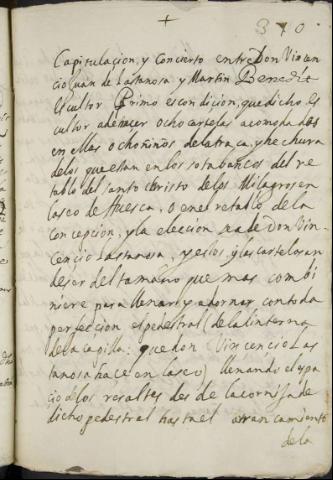 +
370
Capitulacion, y Concierto entre Don Vincen
cio Juan de Lastanosa y Martin Benedit
escultor Primo es condicion, que dicho es
cultor a de hacer ocho cartelas acomodadas
en ellas ocho niños de la traça, y hechura
de los que estan en los sotabancos del re
tablo del santo christo de los Milagros en
la seo de Huesca, o en el retablo de la
concepcion, y la eleccion a de Don Vin-
cencio Lastanosa, y estos, y las cartelas an
de ser del tamaño que mas combi
niere para llenar y adornar con toda
perfeccion el pedestral (de la linterna
de la capilla: que don Vincencio Las
tanosa hace en la seo) llenando el espa
cio de los resaltes desde la cornija de
dicho pedestral hasta el arrancamiento
de la